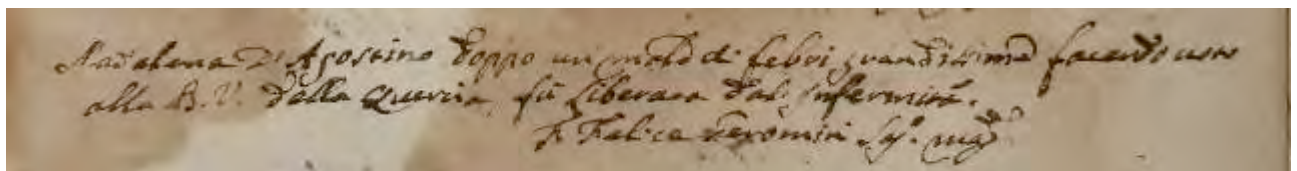 Madalena D'Agostino doppo un male di febri grandissime facendo uoto
alla B. V. della Quercia fù liberata dal infermità.
F. Felice Geromini